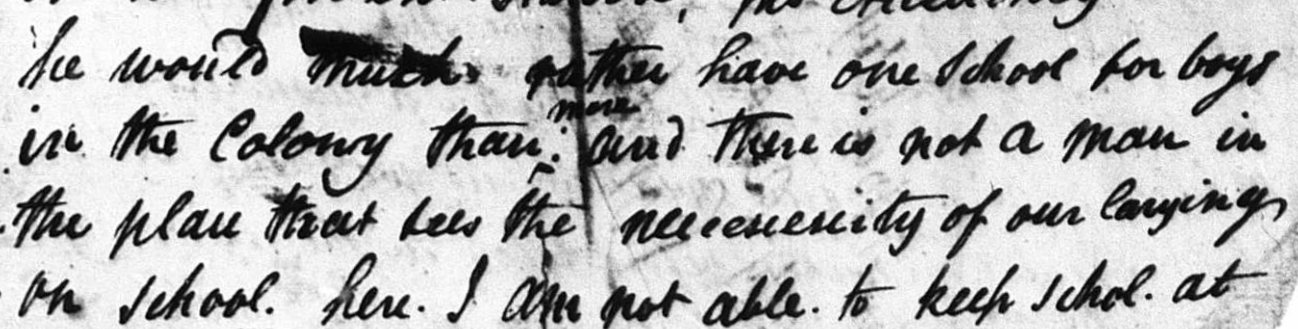 he would much rather have one School for boys
in the Colony than more and there is not a man in
the place that sees the neccescity of our carying
on school. here. I am not able. to keep schol. at